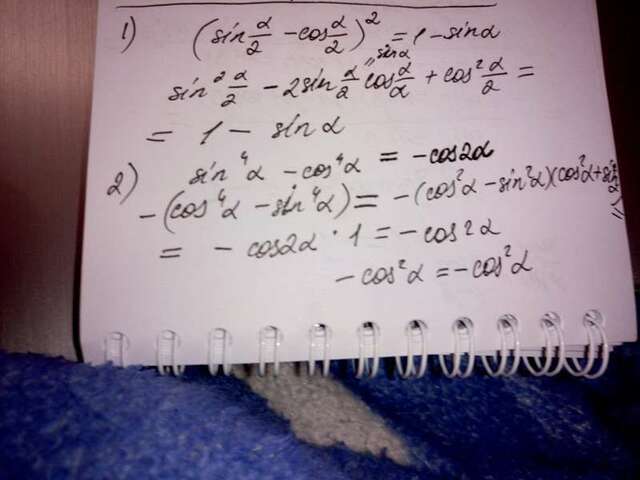 1) (sin α/2 - cos α/2)² = 1 - sin α
sin² α/2 - 2 sin α/2 cos α/α + cos² α/2 =
" sin α
= 1 - sin α
2) sin⁴α - cos⁴α = - cos2α
- (cos⁴α - sin⁴α) = - (cos²α - sin²α)(cos²α + sin²α) =
= - cos2α · 1 = - cos2α
- cos²α = - cos²α